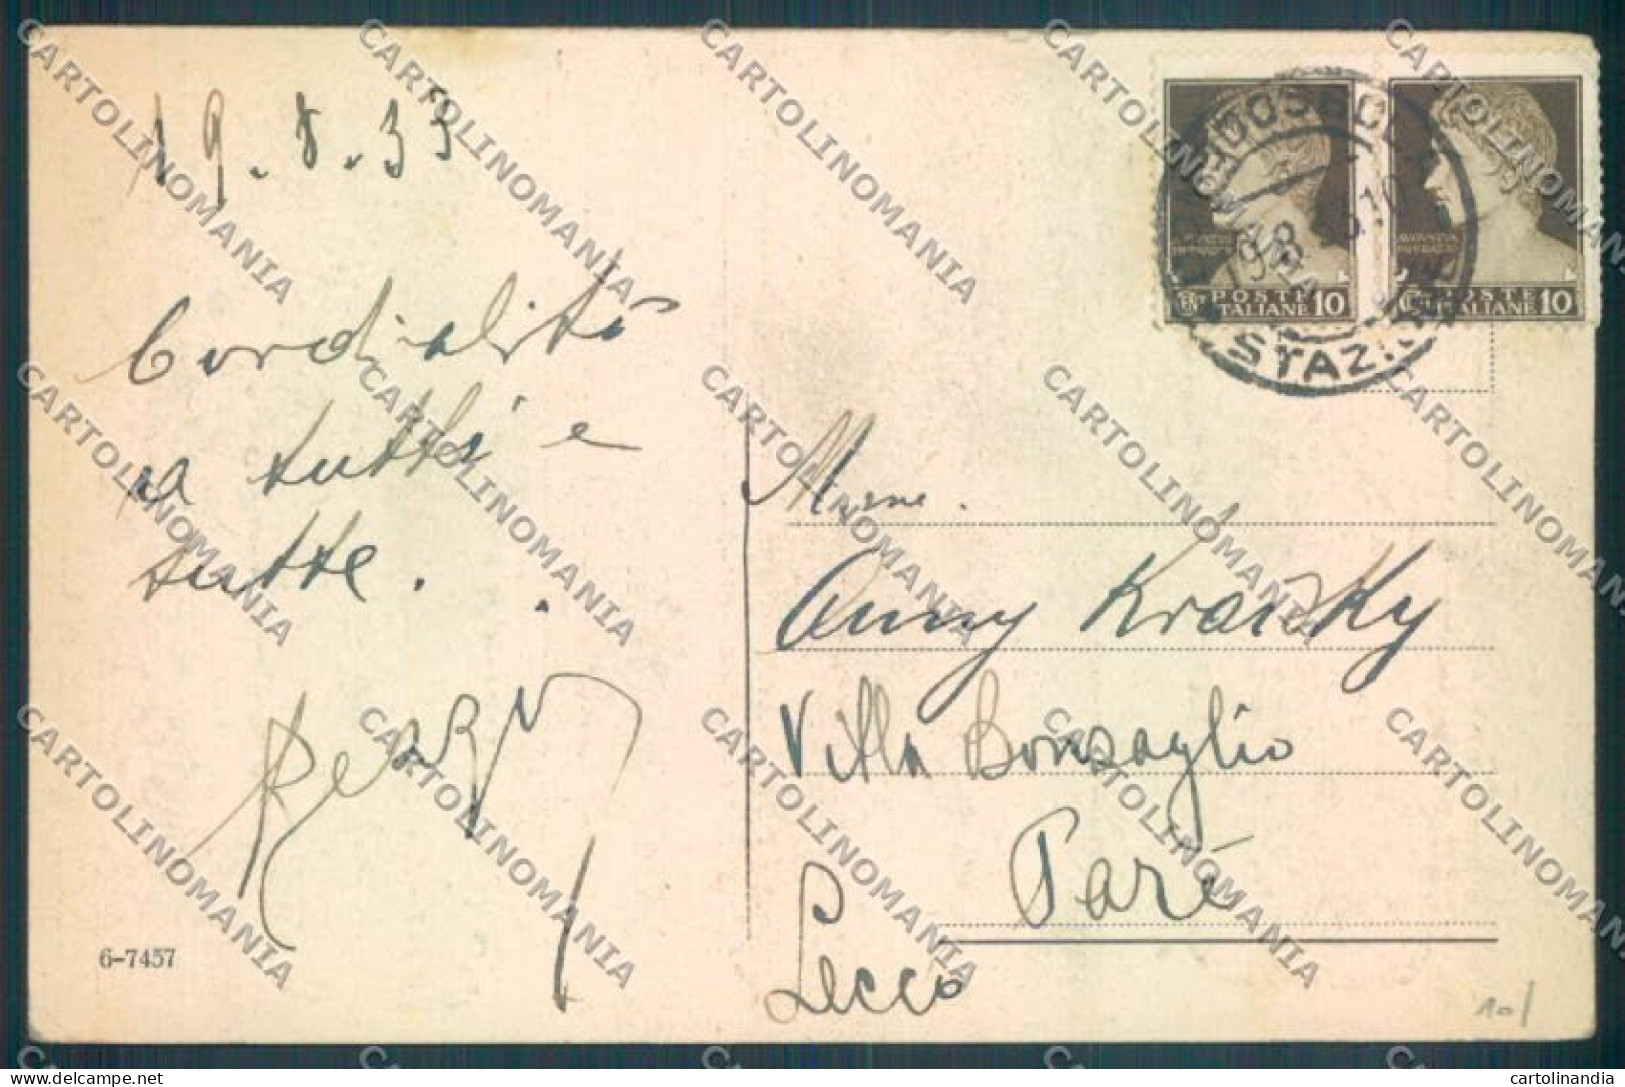 19.8.33
Cordialità
a tutti e
tutte.
POSTE
ITALIANE 10
POSTE
ITALIANE 10
STAZ.
Mme.
Anny Kraisky
Villa Bonsaglio
Parè
Lecco
6-7457
10/
CARTOLINOMANIA
cartolinandia